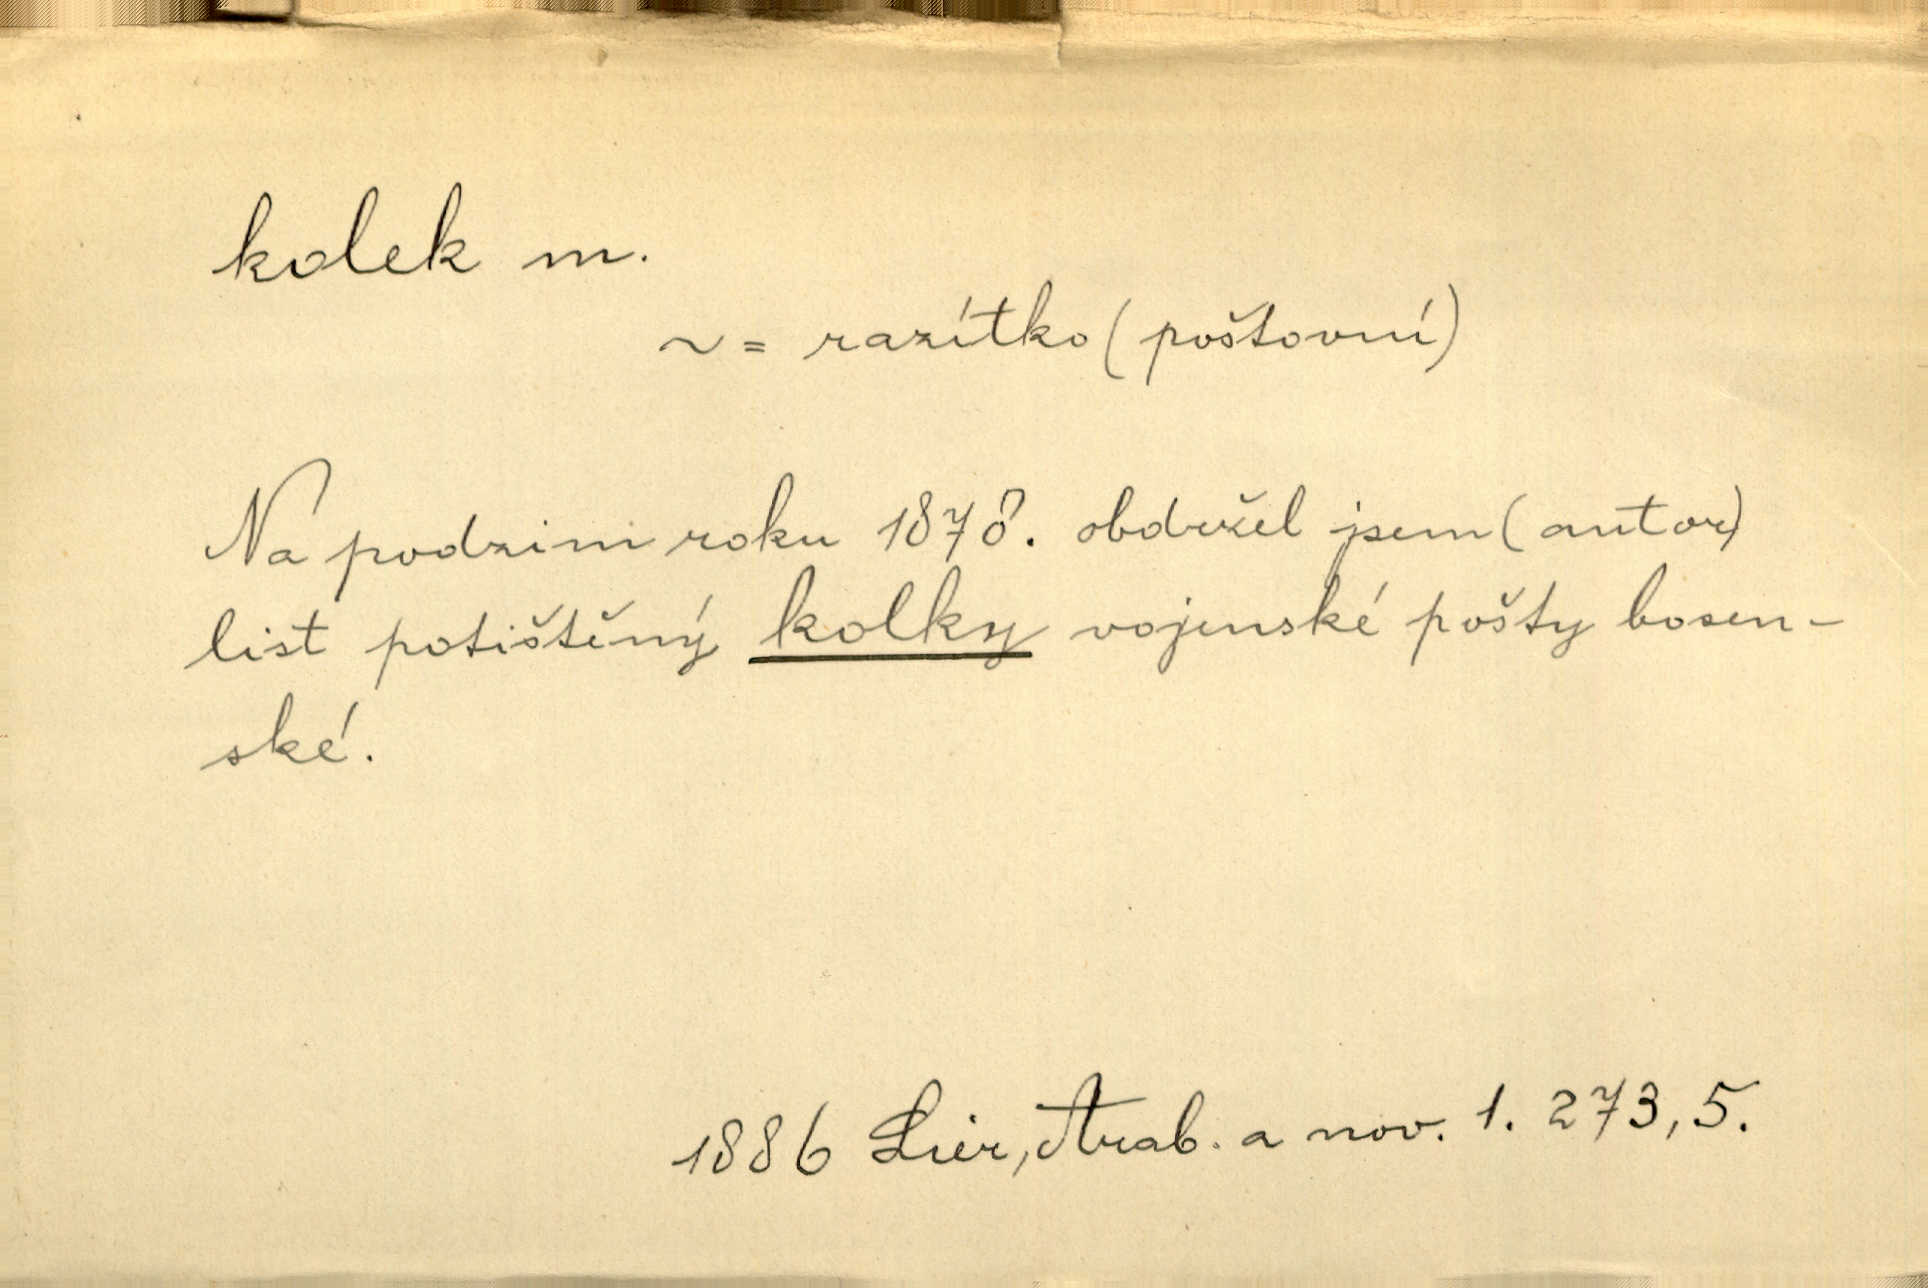 kolek m.
~ = razítko (poštovní)
Na podzim roku 1878. obdržel jsem (autor)
list potištěný kolky vojenské pošty bosen-
ské.
1886 Lier, Arab. a nov. 1. 273, 5.